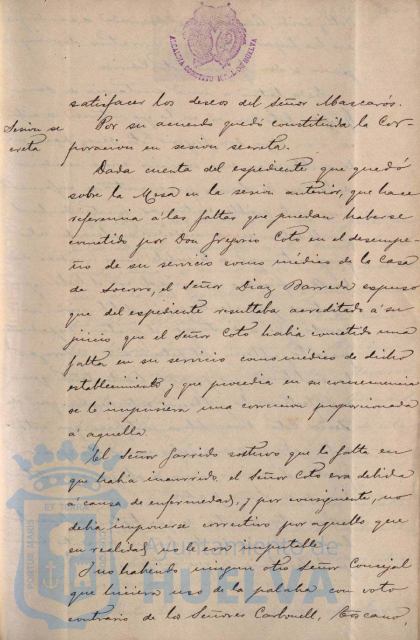 ALCALDIA CONSTITUCIONAL DE HUELVA
satisfacer los deseos del Señor Mascarós.
Sesion se
creta
Por su acuerdo quedó constituida la Cor-
poracion en sesion secreta.
Dada cuenta del espediente que quedó
sobre la Mesa en la sesion anterior, que hace
referencia á las faltas que puedan haberse
cometido por Don Gregorio Coto en el desempe-
ño de su servicio como médico de la Casa
de Socorro, el Señor Diaz Barreda espuso
que del espediente resultaba acreditado á su
juicio que el Señor Coto habia cometido una
falta en su servicio como médico de dicho
establecimiento y que procedia en su consecuencia
se le impusiera una correccion proporcionada
á aquella
El Señor Garrido sostuvo que la falta en
que habia incurrido el Señor Coto era debida
á causa de enfermedad, y por consiguiente, no
debia imponerse correctivo por aquello que
en realidad no le era imputable.
Y no habiendo ningun otro Señor Concejal
que hiciera uso de la palabra con voto
contrario de los Señores Carbonell, Toscano,
PORTUS MARIS
Ayuntamiento de
HUELVA